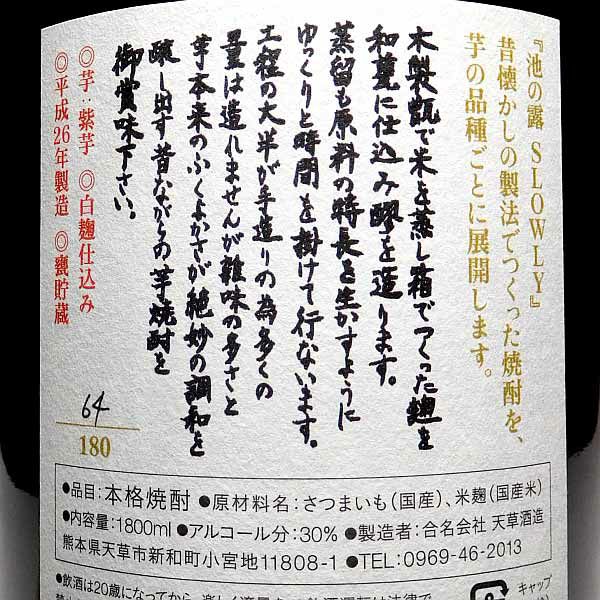 『池の露 SLOWLY』
昔懐かしの製法でつくった焼酎を、
芋の品種ごとに展開します。
木製甑で米を蒸し箱でつくった麹を
和甕に仕込み醪を造ります。
蒸留も原料の特長を生かすように
ゆっくりと時間を掛けて行ないます。
工程の大半が手造りの為多くの
量は造れませんが雑味の多さと
芋本来のふくよかさが絶妙の調和を
醸し出す昔ながらの芋焼酎を
御賞味下さい。
◎芋:紫芋 ◎白麹仕込み
◎平成26年製造 ◎甕貯蔵
64
180
●品目:本格焼酎 ●原材料名:さつまいも(国産)、米麹(国産米)
●内容量:1800ml ●アルコール分:30% ●製造者:合名会社 天草酒造
熊本県天草市新和町小宮地11808-1 ●TEL:0969-46-2013
●飲酒は20歳になってから。
キャップ